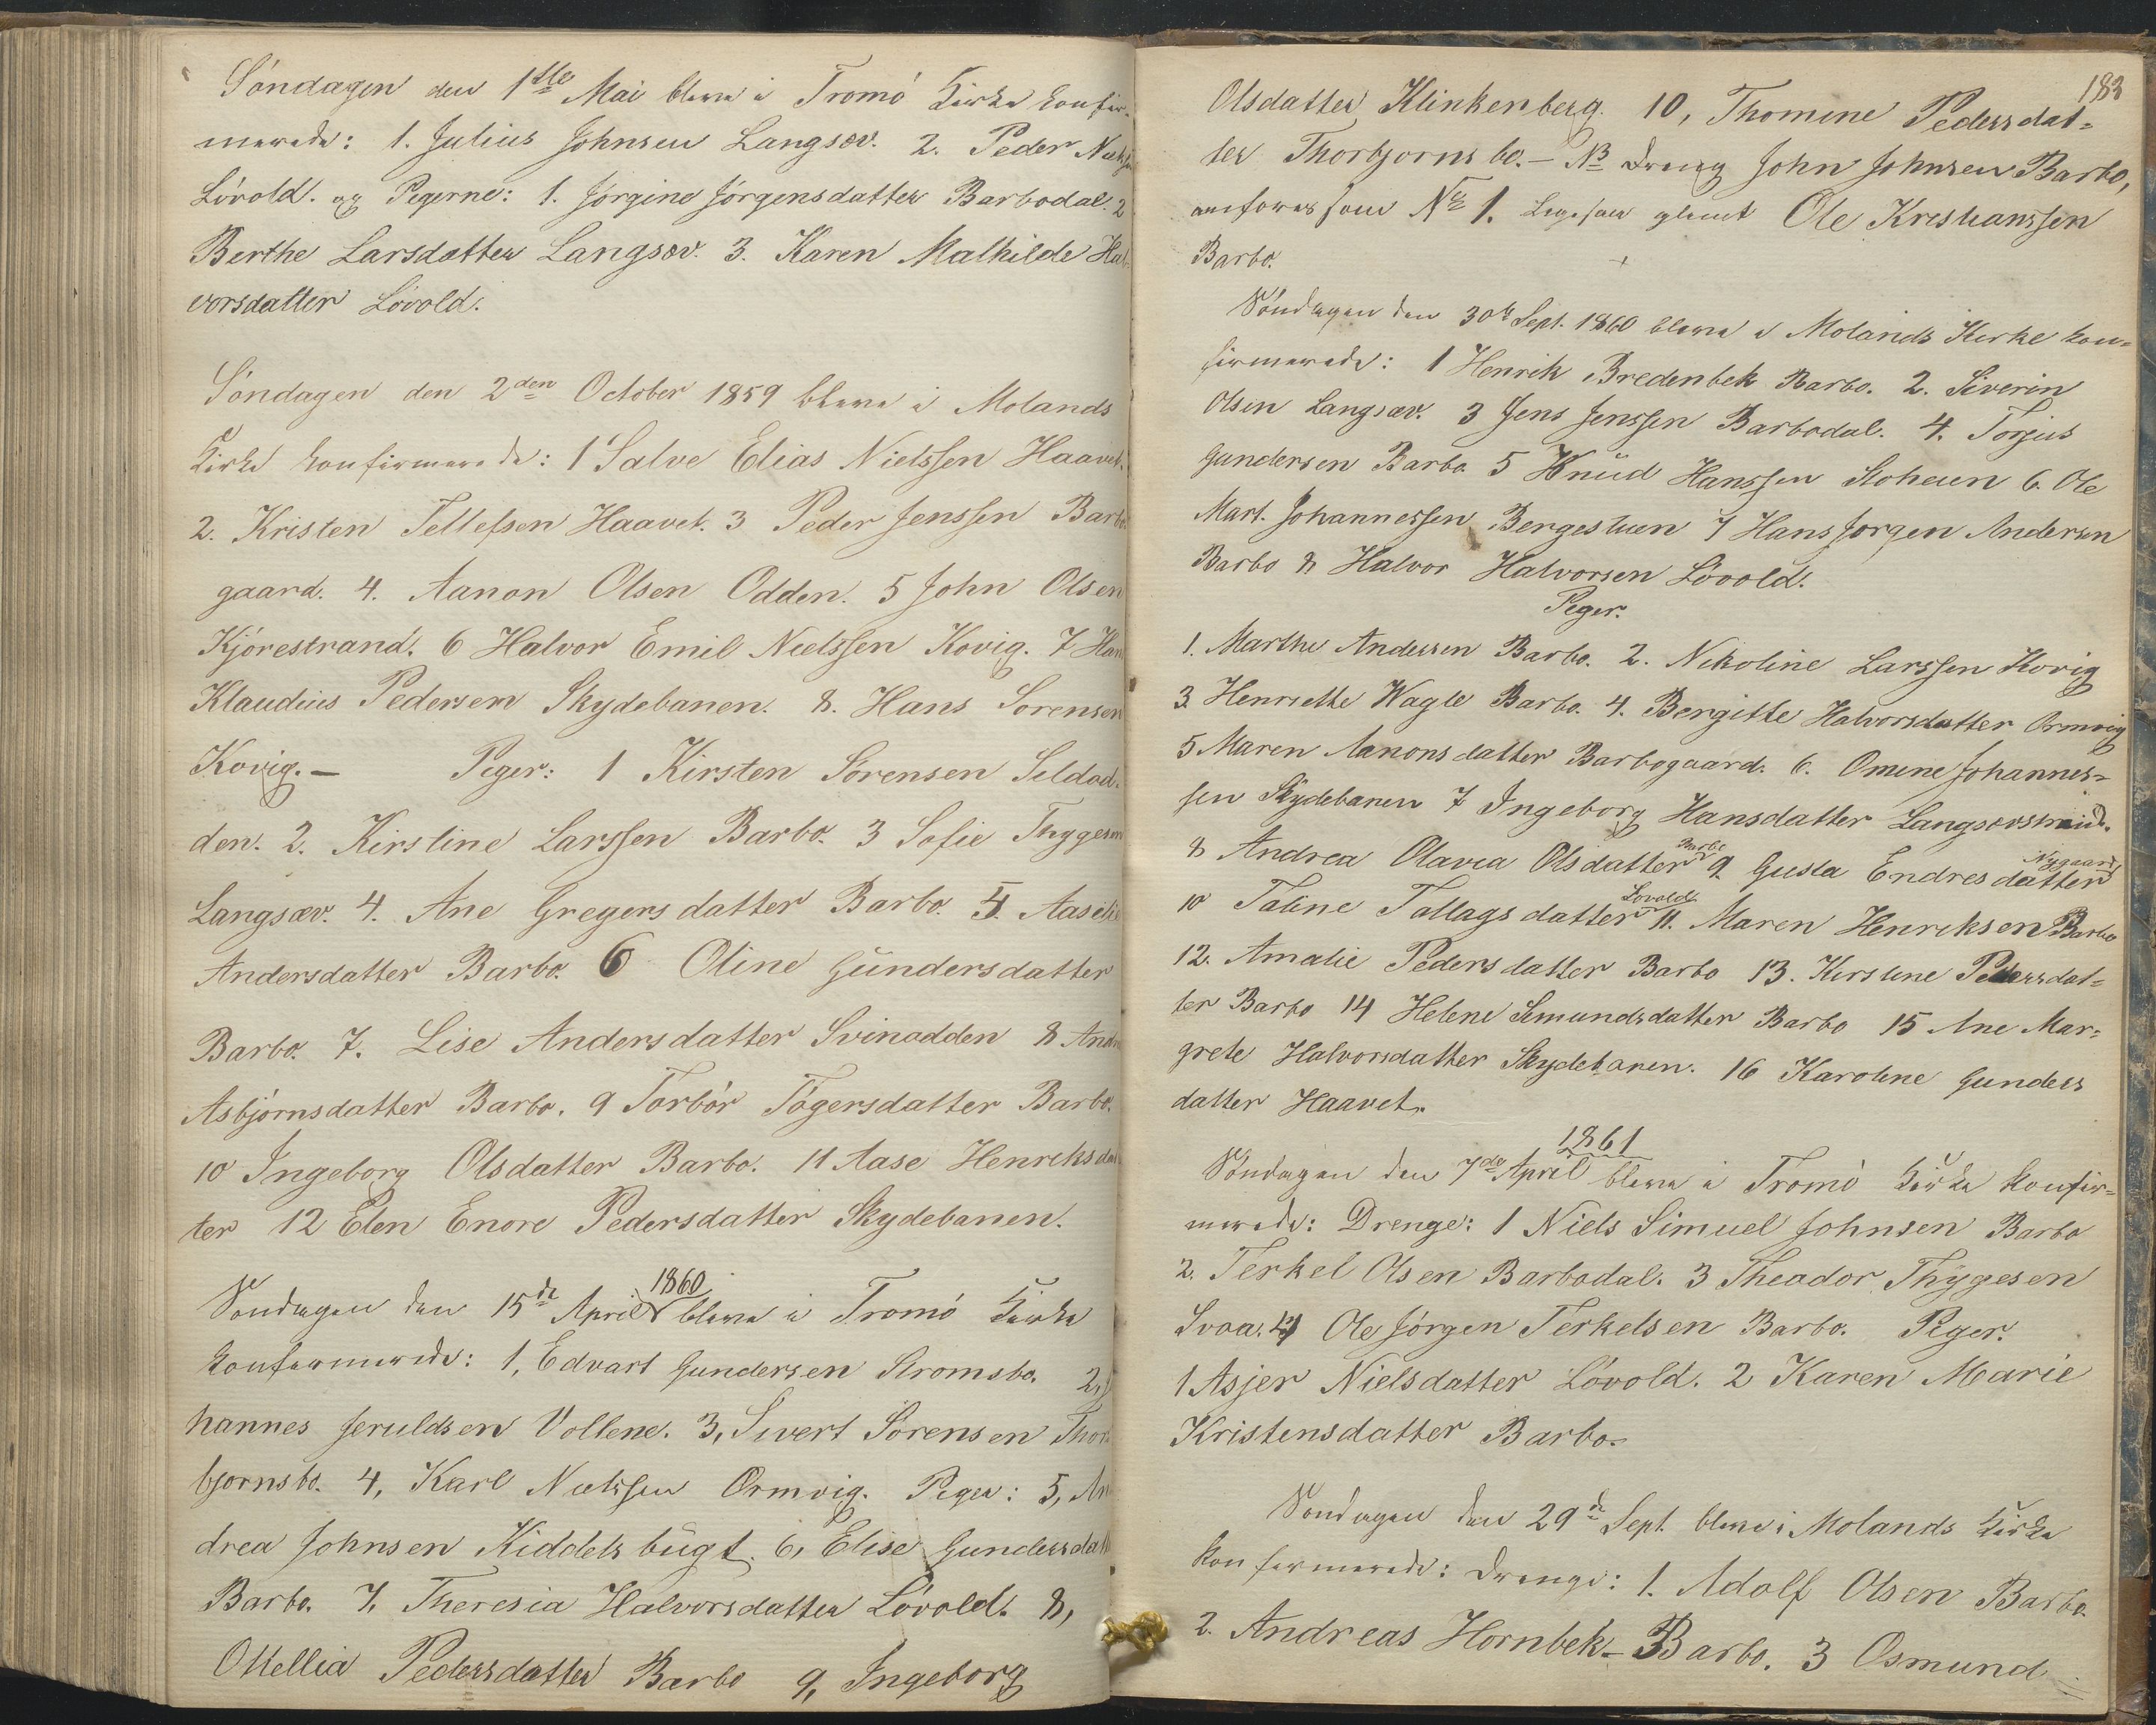 Söndagen den 1ste Mai bleve i Tromö Kirke konfir-
merede: 1. Julius Johnsen Langsæv. 2. Peder
Lövold. og Pigerne: 1. Jörgine Jörgensdatter Barbodal. 2
Berthe Larsdatter Langsæv. 3. Karen Mathilde Hal-
vorsdatter Lövold.
Söndagen den 2den October 1859 bleve i Molands
Kirke konfirmerede: 1 Salve Elias Nielssen Haavet.
2. Kristen Tellefsen Haavet. 3 Peder Jenssen Barbo
gaard. 4. Aanon Olsen Odden. 5 John Olsen
Kjörestrand. 6 Halvor Emil Nielssen Kovig. 7 Hans
Klaudius Pedersen Skydebanen. 8. Hans Sorensen
Kovig. — Piger: 1 Kirsten Sörensen Seldod-
den. 2. Kirstine Larssen Barbo. 3 Sofie Thygesen
Langsæv. 4. Ane Gregersdatter Barbo. 5.
Andersdatter Barbo. 6 Oline Gündersdatter
Barbo. 7. Lise Andersdatter Svinodden 8
Asbjörnsdatter Barbo. 9 Torbör Tögersdatter Barbo.
10 Ingeborg Olsdatter Barbo. 11 Aase Henriksdat
ter 12 Elen Enore Pedersdatter Skydebanen.
1860
Söndagen den 15de April bleve i Tromö Kirke
konfirmerede: 1, Edvart Gundersen Stromsbo. 2,
hannes Jeruldsen Vollene. 3, Sivert Sörensen Thor
bjornsbo. 4, Karl Nielssen Ormvig. Piger: 5, An
drea Johnsen Kiddelsbügt. 6, Elise Gundersdatt
Barbo. 7, Theresia Halvorsdatter Lövold. 8,
Otellia Pedersdatter Barbo 9, Ingeborg
183
Olsdatter Klinkenberg. 10, Thomine Pedersdat-
ter Thorbjornsbo. — NB Dreng John Johnsen Barbo,
anföres som No 1. Ligesom glemt Ole Kristianssen
Barbo.
Söndagen den 30te Sept. 1860 bleve i Molands Kirke kon-
firmerede: 1 Henrik Bredenbek Barbo. 2. Siverin
Olsen Langsæv. 3 Jens Jenssen Barbodal. 4. Torjus
Gundersen Barbo 5 Knüd Hanssen Stoheien 6. Ole
Mart. Johannessen Bergestuen 7 Hans Jorgen Andersen
Barbo 8 Halvor Halvorsen Lövold.
Piger.
1. Marthe Andersen Barbo. 2. Nikoline Larssen Kovig
3. Henriette Wagle Barbo. 4. Bergitte Halvorsdatter Ormvig
5 Maren Aanonsdatter Barbogaard. 6. Omine Johannes-
sen Skydebanen 7 Ingeborg Hansdatter Langsævstrand.
8 Andrea Olavia Olsdatter Barbo 9 Gusta Endresdatter Nygaard
10 Taline Tallagsdatter Lovold 11. Maren Henriksen Barbo
12. Amalie Pedersdatter Barbo 13. Kirstine Pedersdat-
ter Barbo 14 Helene Simundsdatter Barbo 15 Ane Mar-
grete Halvorsdatter Skydebanen. 16 Karoline Gunders
datter Haavet.
1861
Söndagen den 7de April bleve i Tromö Kirke konfir-
merede: Drenge: 1 Niels Simuel Johnsen Barbo
2. Terkel Olsen Barbodal. 3 Theador Thygesen
Svaa. 4 Ole Jörgen Terkelsen Barbo. Piger.
1 Asjer Nielsdatter Lövold. 2 Karen Marie
Kristensdatter Barbo.
Söndagen den 29de Sept. bleve i Molands Kirke
konfirmerede: Drenge: 1. Adolf Olsen Barbo.
2. Andreas Hornbek - Barbo. 3 Osmund